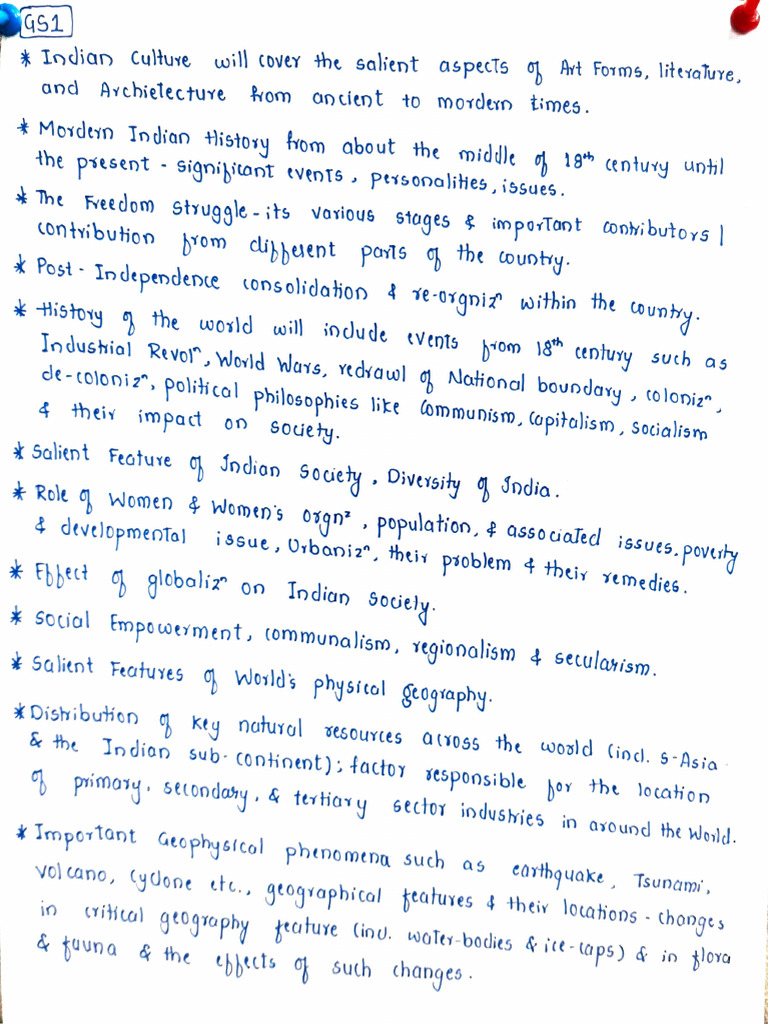 GS1
* Indian Culture will cover the salient aspects of Art Forms, literature,
and Archietecture from ancient to mordern times.
* Mordern Indian History from about the middle of 18th century until
the present - significant events, personalities, issues.
* The Freedom struggle - its various stages & important contributors |
contribution from different parts of the country.
* Post - Independence consolidation & re-orgnizⁿ within the country.
* History of the world will include events from 18th century such as
Industrial Revolⁿ, World Wars, redrawl of National boundary, colonizⁿ,
de-colonizⁿ, political philosophies like Communism, Capitalism, socialism
& their impact on society.
* Salient Feature of Indian Society, Diversity of India.
* Role of Women & Women's orgnᶻ, population, & associated issues. poverty
& developmental issue, Urbanizⁿ, their problem & their remedies.
* Effect of globalizⁿ on Indian society.
* Social Empowerment, communalism, regionalism & secularism.
* Salient Features of World's physical geography.
* Distribution of key natural resources across the world (incl. S-Asia
& the Indian sub-continent); factor responsible for the location
of primary, secondary, & tertiary sector industries in around the World.
* Important Geophysical phenomena such as earthquake, Tsunami,
volcano, cyclone etc., geographical features & their locations - changes
in critical geography feature (incl. water-bodies & ice-caps) & in flora
& fauna & the effects of such changes.